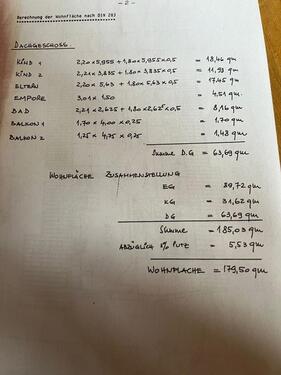 - 2 -
Berechnung der Wohnfläche nach DIN 283
DACHGESCHOSS
KIND 1 2,20 x 5,955 + 1,80 x 5,955 x 0,5 = 18,46 qm
KIND 2 2,21 x 3,835 + 1,80 x 3,835 x 0,5 = 11,93 qm
ELTERN 2,20 x 5,63 + 1,80 x 5,63 x 0,5 = 17,45 qm
EMPORE 3,01 x 1,50 = 4,51 qm
BAD 2,21 x 2,625 + 1,80 x 2,625 x 0,5 = 8,16 qm
BALKON 1 1,70 x 4,00 x 0,25 = 1,70 qm
BALKON 2 1,25 x 4,75 x 0,25 = 1,48 qm
SUMME D.G = 63,69 qm
WOHNFLÄCHE ZUSAMMENSTELLUNG
EG = 89,72 qm
KG = 31,62 qm
DG = 63,69 qm
SUMME = 185,03 qm
ABZÜGLICH 3% PUTZ = 5,53 qm
WOHNFLÄCHE = 179,50 qm